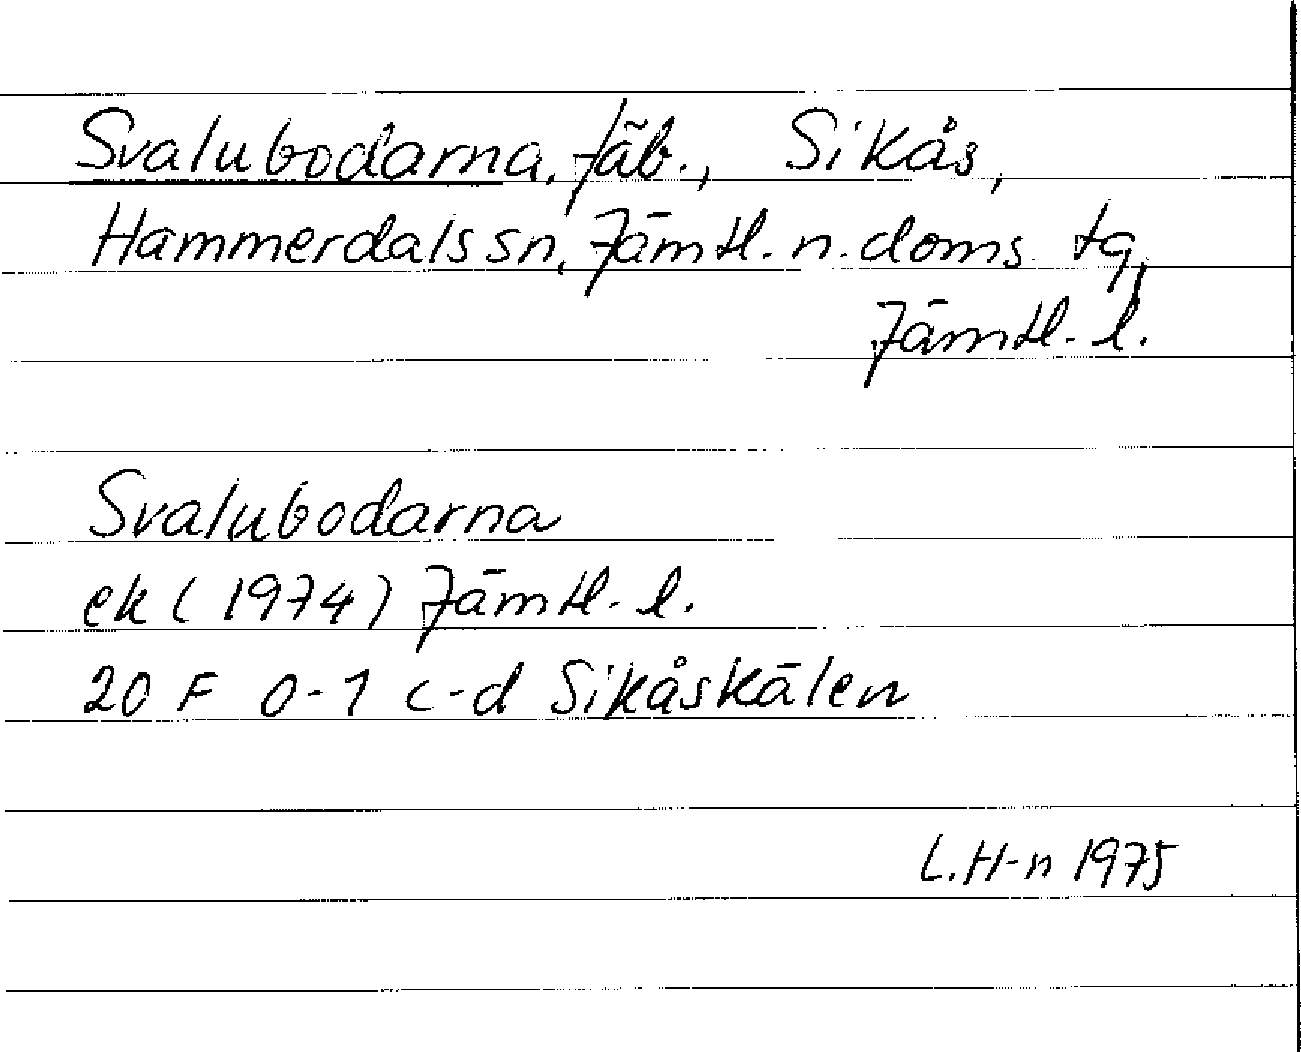 Svalubodarna, fäb., Sikås,
Hammerdals sn, Jämtl. n. doms. tg,
Jämtl. l.
Svalubodarna
ek (1974) Jämtl. l.
20 F 0-1 c-d Sikåskälen
L. H-n 1975